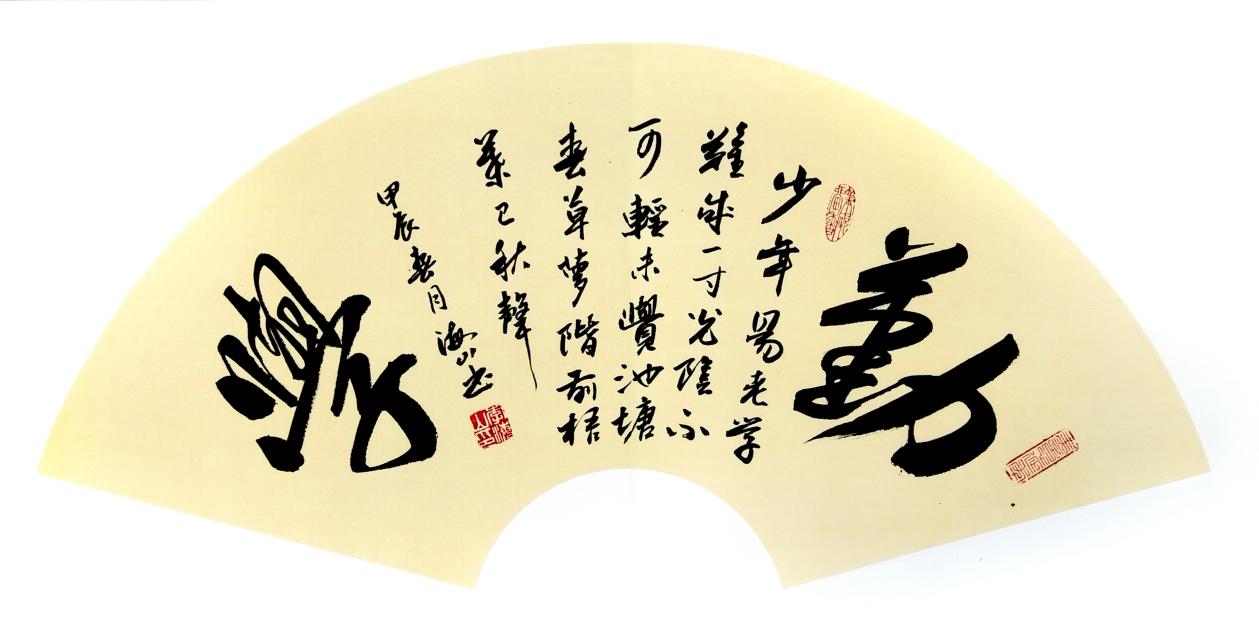 勤
少年易老学
難成一寸光陰不
可輕未覺池塘
春草夢階前梧
葉已秋聲
甲辰春月海山书
李海山印